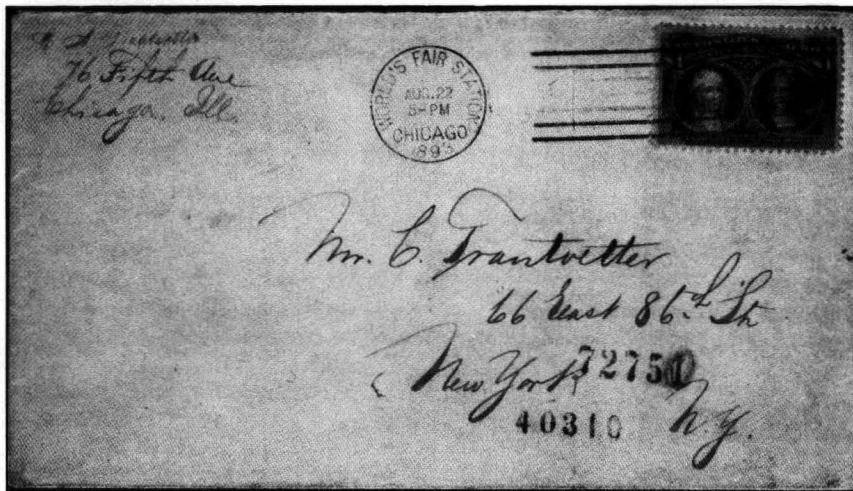 76 Fifth Ave
Chicago. Ill.
WORLD'S FAIR STATION
AUG. 22
5-PM
CHICAGO
1893
Mr. C. Trautvetter
66 East 86th St
New York 72751
40310 N.Y.